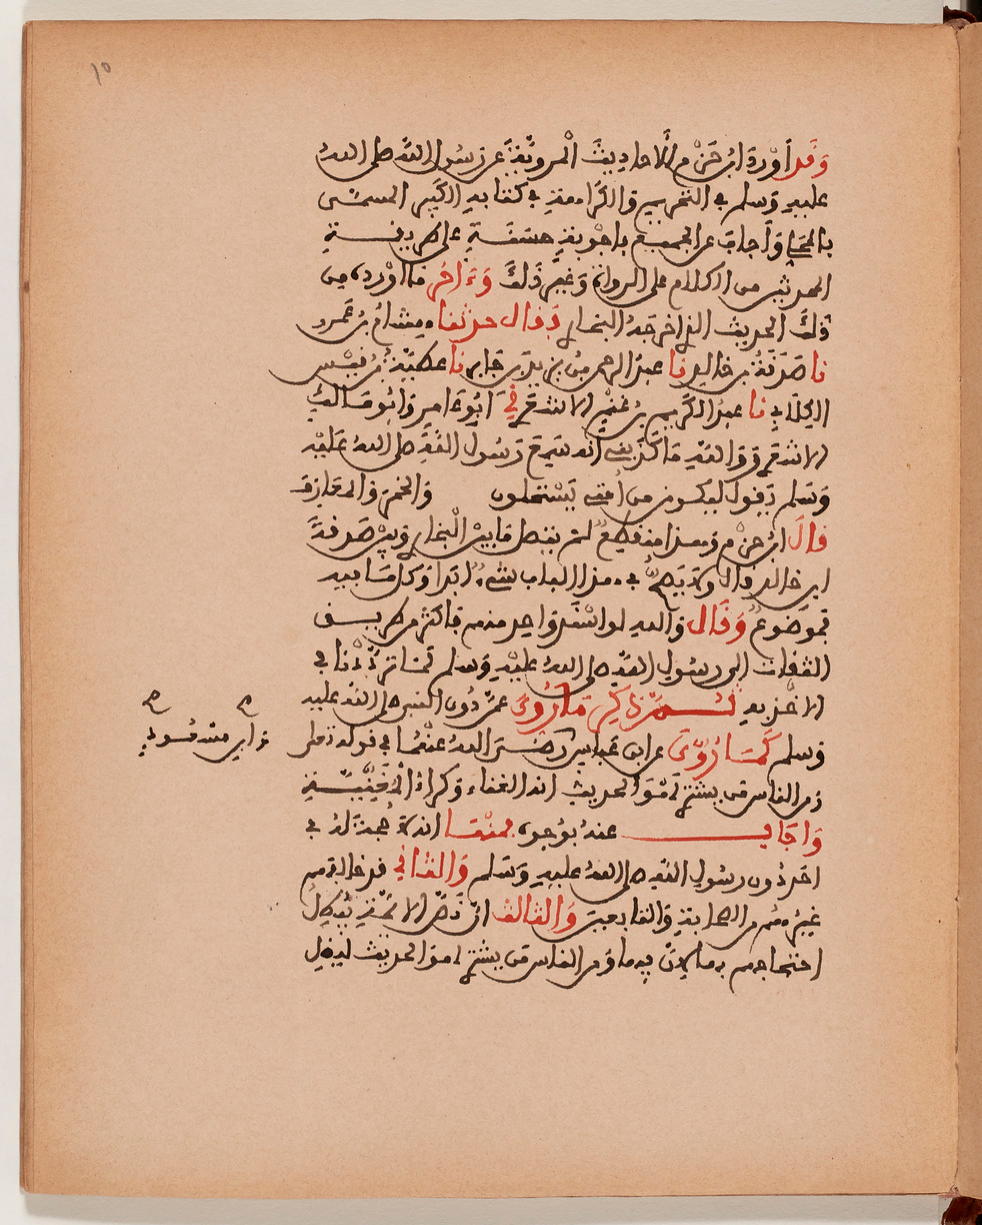 ١٥
وَقَد أَوْرَدَ ابن حَزْم الأَحاديثَ الْمرويَّةَ عن رَسُول اللَّه صلى اللهُ
عليهِ وَسلم في التحريم وَالكَراهة في كتابهِ الكَبير المسمَّى
بالمحَلَّى وَأَجابَ عن الجميع بأجوبةٍ حسَنَةٍ على طريقـة
المحدثين من الكلام على الرواة وَغيْر ذَلكَ وَءَاخرُ ما أورده من
ذَلكَ الحديث الذي أخرجَهُ البخاري فقال حدثنا هشامُ بْن عَمّار
نا صَدَقَةُ بن خالد نا عبد الرحمن بن يزيد بن جَابر نا عطيّة بْنُ قيْس
الكِلَابي نا عبدُ الكَريم بنُ غَنْم الاشعَري في أَبُو عَامر وَابُو مَالك
الاشعري وَواللَّهِ مَا كَذَبني أنه سَمِعَ رَسُول اللَّه صلى اللهُ عَليْه
وَسلم يَقول ليكونن من أمتي يَسْتحلون وَالخمرَ وَالمعَازِفَ
قالَ ابن حزْم وَهذا منقطِعٌ لمْ يتصل مَا بيْن الْبخاري وَبيْن صَدقةَ
ابن خالد قال وَلا يَصحُّ في هذا الباب شيْءٌ أبدا وَكل مَا فيه
فموضوعٌ وَقَال وَالله لو اسْنَد وَاحد منهم فاكثر من طريــق
الثقات إلى رسُول اللَّه صلى اللهُ عليْهِ وَسلم لمَا ترَدَّدْنا في
الأخْذ به ثُـــمَّ ذكر مَا رُويَ عمَّن دُون النبي صلى اللَّه عليه
وَسلم كَمَا رُوّيَ عن ابن عَباسٍ رَضيَ اللهُ عنْهُمَا في قوله تعلى
وَابن مَسْعُودٍ
وَمن الناس مَن يشتري لَهْوَ الحديث انه الغناء وَكراءُ الْمُغَنِّيَـةِ
وَأجَابَ عنهُ بوُجوه منْهَا انه لا حُجةَ لهُ في
احَد دُون رسُول اللَّه صلى اللهُ عليهِ وَسَلم وَالثاني قد خالفهم
غيْرُهُم من الصحابة وَالتابعين وَالثالث ان نَصّ الآيَةِ يُبْطِلُ
احتجاجهم بهما لانّ فيهما وَمن الناس مَن يشتري لهو الحديث ليضِل